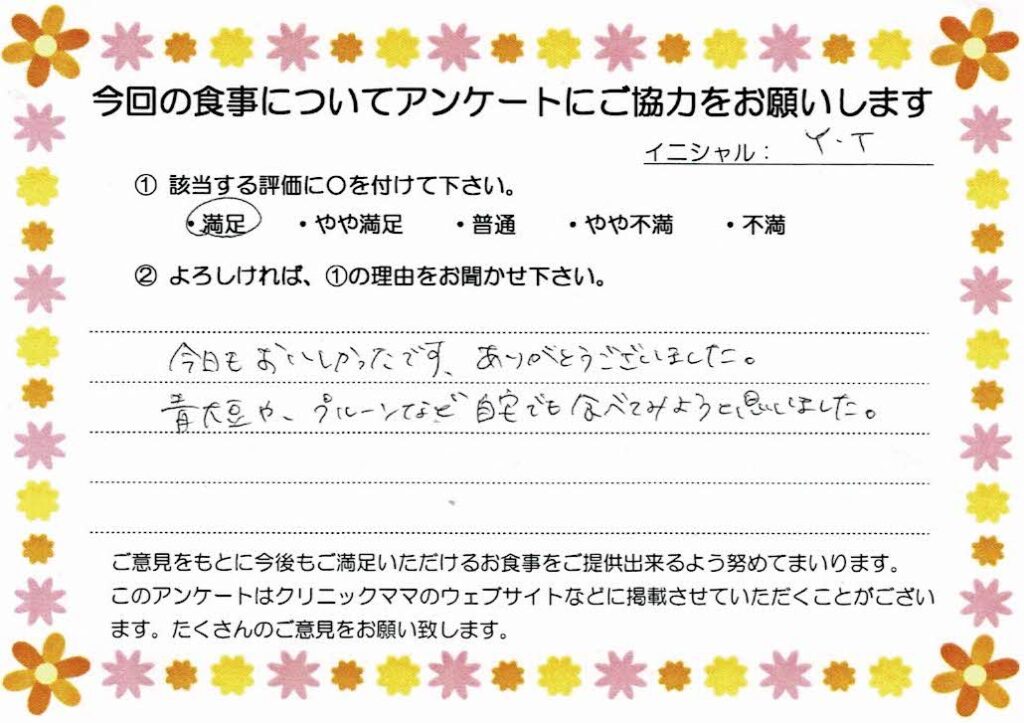 今回の食事についてアンケートにご協力をお願いします
イニシャル： Y・T
① 該当する評価に〇を付けて下さい。
・満足 ・やや満足 ・普通 ・やや不満 ・不満
② よろしければ、①の理由をお聞かせ下さい。
今日もおいしかったです、ありがとうございました。
青大豆や、プルーンなど自宅でも食べてみようと思いました。
ご意見をもとに今後もご満足いただけるお食事をご提供出来るよう努めてまいります。
このアンケートはクリニックママのウェブサイトなどに掲載させていただくことがござい
ます。たくさんのご意見をお願い致します。